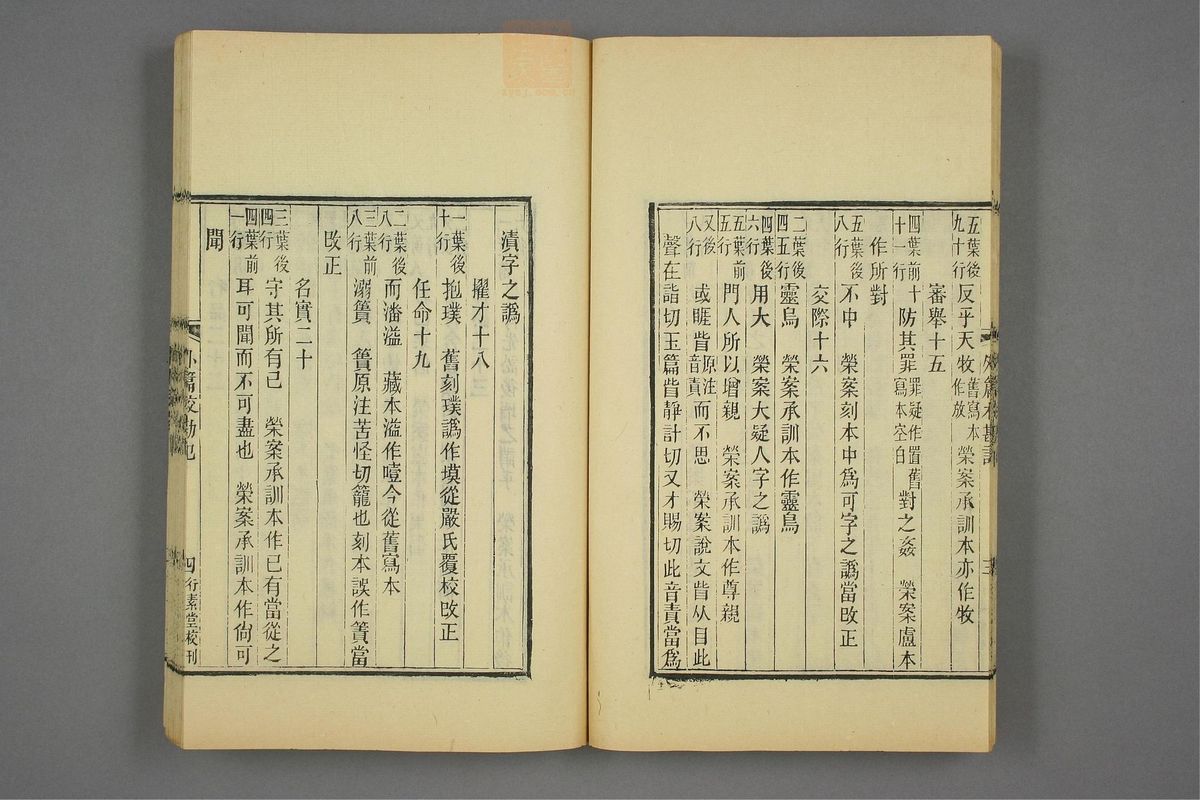 五葉後九十行反乎天牧舊寫本作放榮案承訓本亦作牧
審舉十五
四葉前十一行十防其罪罪疑作置舊寫本空白對之姦 榮案盧本
作所對
五葉後八行不中 榮案刻本中爲可字之譌當改正
交際十六
二葉後四五行靈烏 榮案承訓本作靈鳥
四葉後六行用大 榮案大疑人字之譌
五葉前五行門人所以增親 榮案承訓本作尊親
又後八行或睚眥原注音責而不思 榮案說文眥从目此
聲在詣切玉篇眥靜計切又才賜切此音責當爲
漬字之譌
擢才十八
一葉後十行抱璞 舊刻璞譌作墣從嚴氏覆校改正
任命十九
二葉後八行而潘溢 藏本溢作噎今從舊寫本
三葉前八行溺簣 簣原注苦怪切籠也刻本誤作簀當
改正
名實二十
三葉後四行守其所有已 榮案承訓本作已有當從之
四葉前一行耳可聞而不可盡也 榮案承訓本作尙可
聞
外篇校勘記
四 行素堂校刊